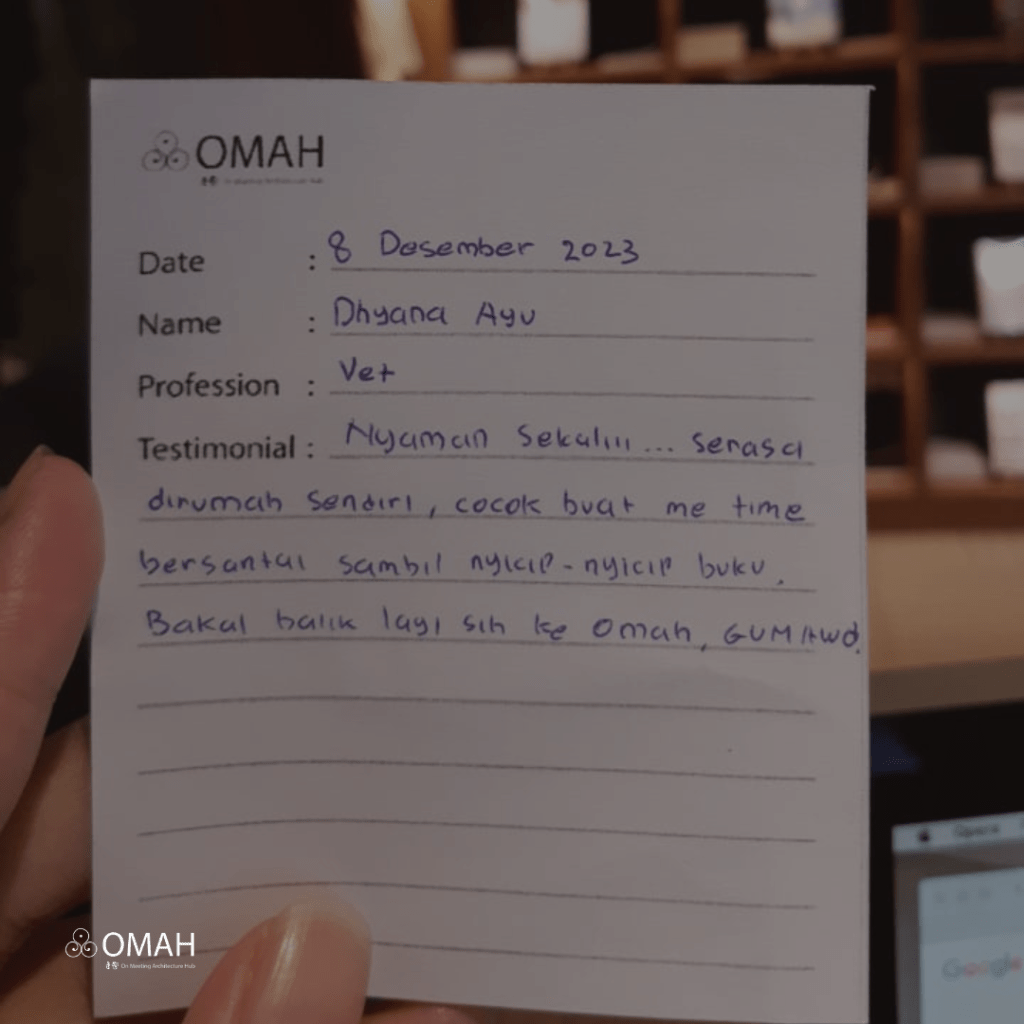 OMAH
Date : 8 Desember 2023
Name : Dhyana Ayu
Profession : Vet
Testimonial : Nyaman sekaliii ... serasa
dirumah sendiri, cocok buat me time
bersantai sambil nyicip-nyicip buku.
Bakal balik lagi sih ke Omah, GUMAWO.
OMAH
On Meeting Architecture Hub
Space
Google